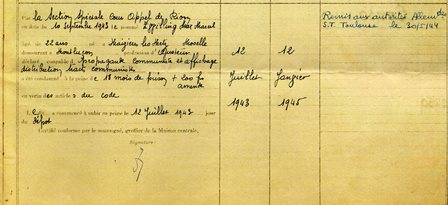 Par la Section Spéciale Cour Appel de Riom
en date du 10 Septembre 1943 le nommé
âgé de 22 ans Moselle
demeurant à Montluçon profession d'Ajusteur
déclaré coupable d Propagande Communiste et affichage
distribution tract communiste
a été condamné à la peine de 18 mois de prison + 200 frs
amende
en vertu des articles du code
L a commencé à subir sa peine le 12 Juillet 1943 jour
du dépôt
Certifié conforme par le soussigné, greffier de la Maison centrale,
Signature :
12
Juillet
1943
12
Janvier
1945
Remis aux autorités Allemdes
S.T. Toulouse le 30/5/44